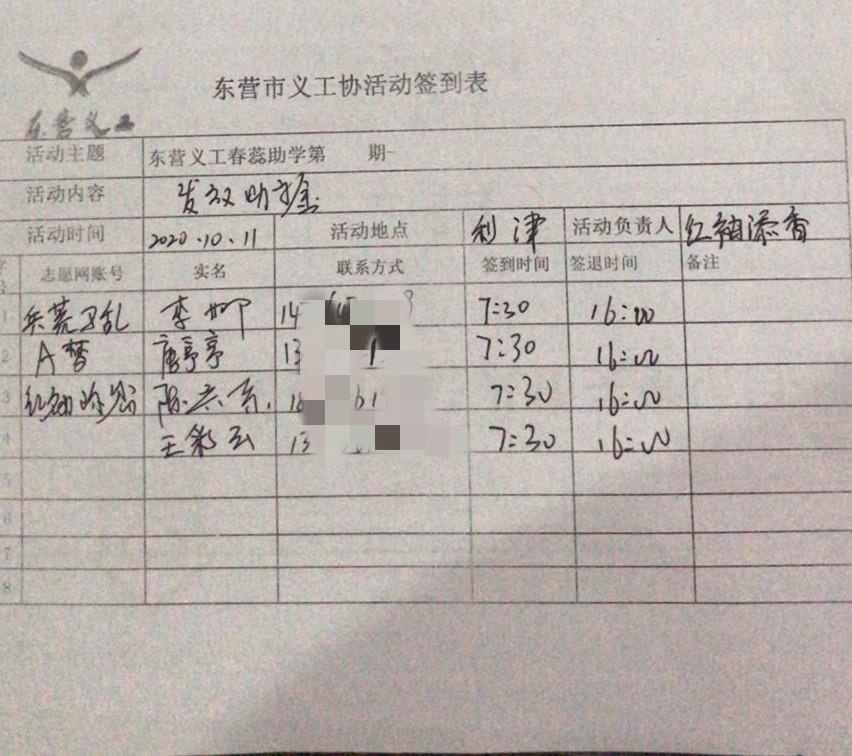 东营市义工协活动签到表
东营义工
活动主题 东营义工春蕊助学第 期
活动内容 发放助学金
活动时间 2020.10.11 活动地点 利津 活动负责人 红袖添香
志愿网账号 实名 联系方式 签到时间 签退时间 备注
1 李柳 14 7:30 16:00
2 A梦 唐亭亭 13 1 7:30 16:00
3 陈 18 61 7:30 16:00
4 王彩云 13 7:30 16:00
5
6
7
8